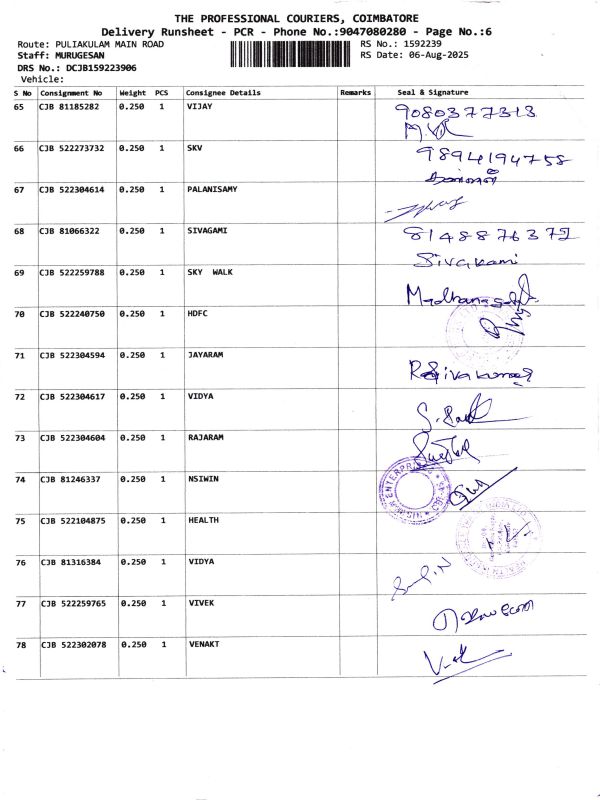 THE PROFESSIONAL COURIERS, COIMBATORE
Delivery Runsheet - PCR - Phone No.:9047080280 - Page No.:6
Route: PULIAKULAM MAIN ROAD RS No.: 1592239
Staff: MURUGESAN RS Date: 06-Aug-2025
DRS No.: DCJB159223906
Vehicle:
S No Consignment No Weight PCS Consignee Details Remarks Seal & Signature
65 CJB 81185282 0.250 1 VIJAY 9080377313
66 CJB 522273732 0.250 1 SKV 9894194758
67 CJB 522304614 0.250 1 PALANISAMY
68 CJB 81066322 0.250 1 SIVAGAMI 8148876372
Sivakami
69 CJB 522259788 0.250 1 SKY WALK
70 CJB 522240750 0.250 1 HDFC
71 CJB 522304594 0.250 1 JAYARAM
72 CJB 522304617 0.250 1 VIDYA
73 CJB 522304604 0.250 1 RAJARAM
74 CJB 81246337 0.250 1 NSIWIN
75 CJB 522104875 0.250 1 HEALTH
76 CJB 81316384 0.250 1 VIDYA
77 CJB 522259765 0.250 1 VIVEK
78 CJB 522302078 0.250 1 VENAKT